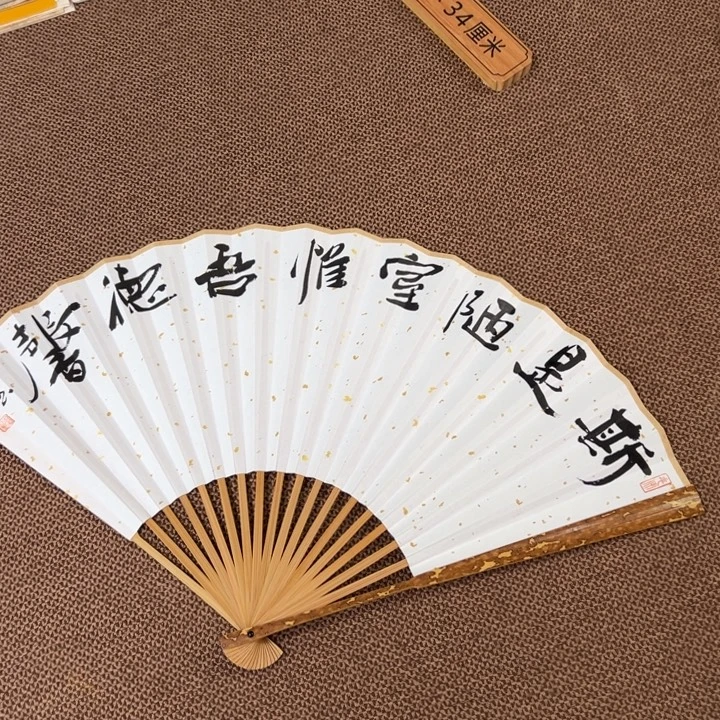 斯是陋室惟吾德馨
34厘米